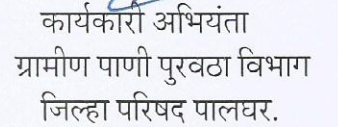 कार्यकारी अभियंता
ग्रामीण पाणी पुरवठा विभाग
जिल्हा परिषद पालघर.